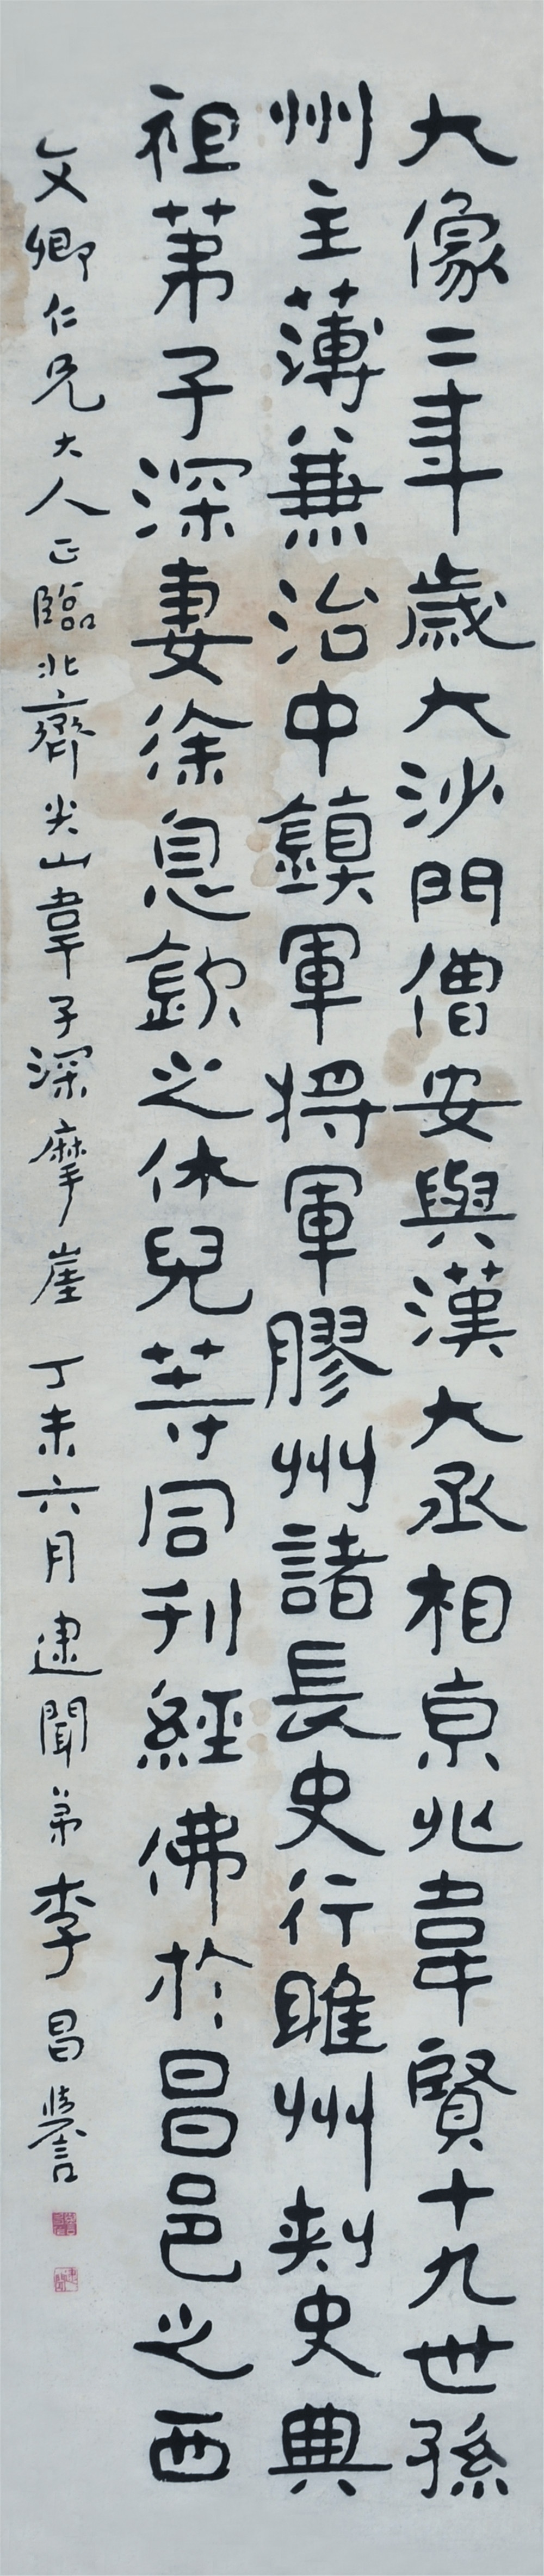 大像二年歲大沙門僧安與漢大丞相京兆韋賢十九世孫
州主薄兼治中鎮軍將軍膠州諸長史行睢州刺史典
祖苐子深妻徐息欽之休兒等同刊經佛於昌邑之西
文卿仁兄大人正臨北齊尖山韋子深摩崖 丁未六月 逮聞弟李昌